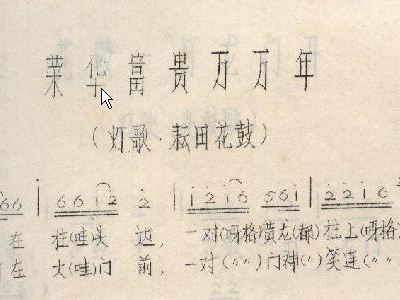 荣华富贵万万年
(灯歌·耘田花鼓)
66 | 66i2 2 | i2i6 56i | 22i6
在 柱(哇)头 边, 一对(呀格)黄龙(都)柱上(呀格)
在 大(哇)门 前, 一对(〃〃)门神(〃)笑连(〃〃